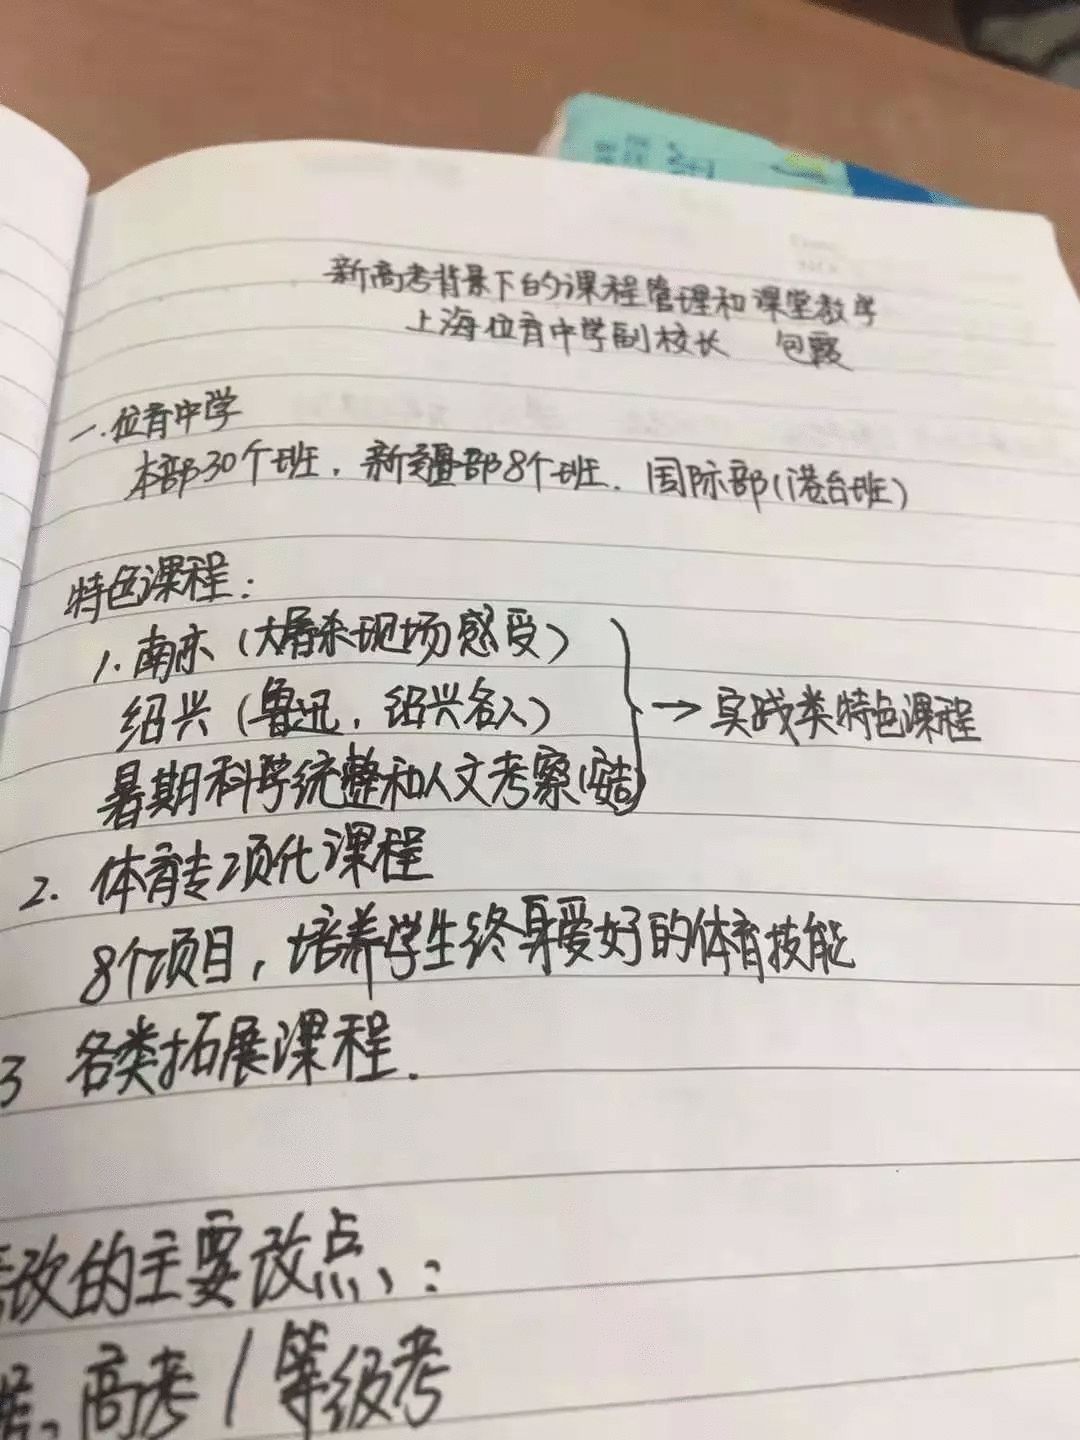 新高考背景下的课程管理和课堂教学
上海位育中学副校长 包霞
一.位育中学
本部30个班.新疆部8个班.国际部(港台班)
特色课程:
1.南京(大屠杀现场感受)
绍兴(鲁迅,绍兴名人)
暑期科学统整和人文考察(安吉)
→实践类特色课程
2.体育专项化课程
8个项目,培养学生终身爱好的体育技能
3 各类拓展课程.
改的主要改点:
高考/等级考